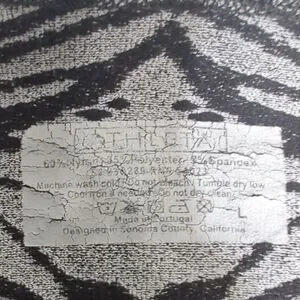 ATHLETA
Nylon 35% Polyester 5% Spandex
Machine wash cold. Do not bleach. Tumble dry low
Cool iron if needed. Do not dry clean.
L
Made in Portugal
Designed in Sonoma County, California